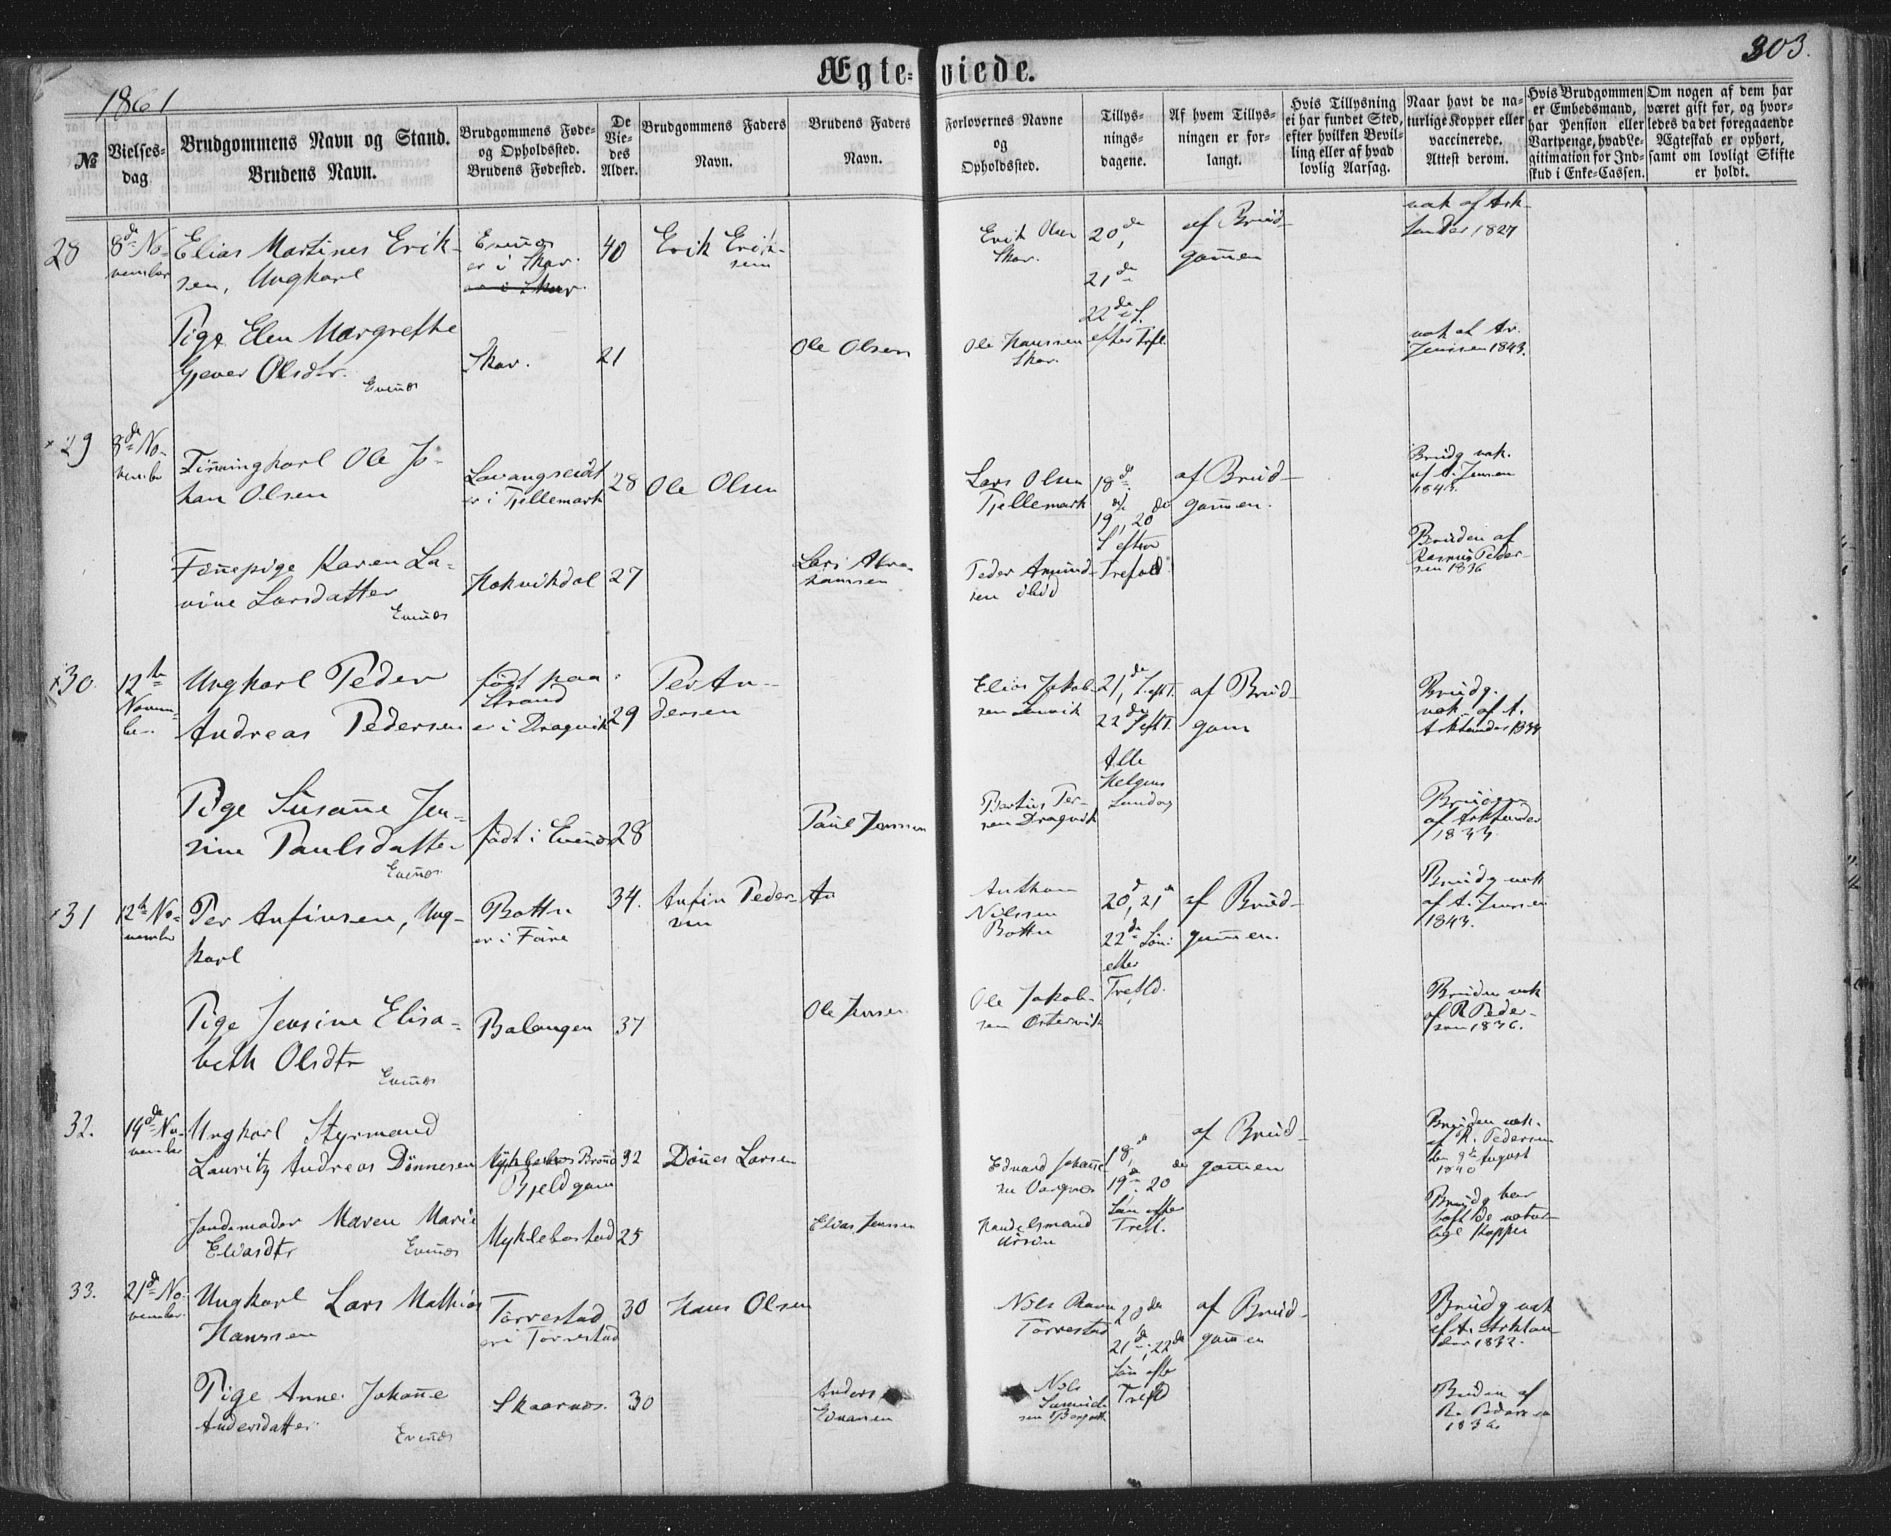 1861
Ægteviede.
303.
№
Vielsesdag
Brudgommens Navn og Stand.
Brudens Navn.
Brudgommens Føde-
og Opholdssted.
Brudens Fødested.
De
Vie-
des
Alder.
Brudgommens Faders
Navn.
Brudens Faders
Navn.
Forlovernes Navne
og
Opholdssted.
Tillys-
nings-
dagene.
Af hvem Tillys-
ningen er for-
langt.
Hvis Tillysning
ei har fundet Sted,
efter hvilken Bevil-
ling eller af hvad
lovlig Aarsag.
Naar havt de na-
turlige Kopper eller
vaccinerede.
Attest derom.
Hvis Brudgommen
er Embedsmand,
har Pension eller
Vartpenge, hvad Le-
gitimation for Ind-
skud i Enke-Cassen.
Om nogen af dem har
været gift før, og hvor-
ledes da det foregaaende
Ægteskab er ophørt,
samt om lovligt Skifte
er holdt.
28
8de No-
vember
Elias Martines Erik-
sen, Ungkarl
Evenæs
er i Skar.
40
Erik Erik-
sen
Erik Olsen
Skar.
20de,
21de
22de S.
efter Tref.
af Brud-
gommen
vak af Ark-
lander 1827
Pige Elen Margrethe
Gjever Olsdtr.
Evenæs
Skar.
21
Ole Olsen
Ole Hanssen
Skar.
vak af Ar.
Jenssen 1843.
29
8de No-
vember
Finnungkarl Ole Jo-
han Olsen
Lavangseidt
er i Tjellemark
28
Ole Olsen
Lars Olsen
Tjellemark
18de
19, 20de
S. efter
Trefold.
af Brud-
gommen.
Brudg vak.
af A. Jenssen
1843.
Fønepige Karen La-
vine Larsdatter
Evenæs
Kokvikdal
27
Lars Abra-
hamsen
Peder Amund-
sen ibid
Bruden af
Rasmus Peder-
sen 1836
30.
12te
Novem-
ber.
Ungkarl Peder
Andreas Pedersen
født paa
Strand
er i Dragvik
29
Per An-
dersen
Elias Jakob-
sen
21de S. eft T.
22de S eft T.
Alle
Helgens
Søndag
af Brud-
gom
Brudg.
vak. af A.
Arklander 1834
Pige Susanne Jen-
sine Paulsdatter
Evenæs.
født i Evenæs
28
Paul Jenssen
Bertius Per-
sen Dragvik
Bruden
af Arklander
1833
31
12te No-
vember
Per Anfinsen, Ung-
karl
Bottn
er i Fore
34.
Anfin Peder-
sen
An
Anthon
Nilssen
Bottn
20, 21de
22de Søn:
efter
Trefld.
af Brud-
gommen.
Brudg vak
af A. Jenssen
1843.
Pige Jensine Elisa-
beth Olsdtr
Evenæs
Balangen
37
Ole Jensen
Ole Jakob-
sen Østervik
Bruden vak
af R Peder-
sen 1836.
32.
14de No-
vember
Ungkarl Styrmand
Lauritz Andreas Dønnesen
Bjeldgam
32
Dønes Larsen
Edvard Johanne-
sen
18de,
19de. 20de
Søn efter
Trefl.
af Brud-
gommen
Bruden vak.
af R. Pedersen
den 9de August
1840
Jordemoder Maren Marie
Eliasdtr
Evenæs
Myklebostad
25
Elias Jenssen
Handelsmand
Brudg har
haft de natur-
lige Kopper
33.
21de No-
vember
Ungkarl Lars Mathias
Hanssen
Torrestad
er i Torrestad
30
Hans Olsen
Nils
Torrestad
20de
21de, 22de
Søn efter
Trefld
af Brud-
gommen
Brudg vak
af A. Arklan-
der 1832.
Pige Anne Johanne
Andersdatter
Evenæs
Skaarnes.
30
Anders
Nils
Bruden af
R. Pedersen
1836